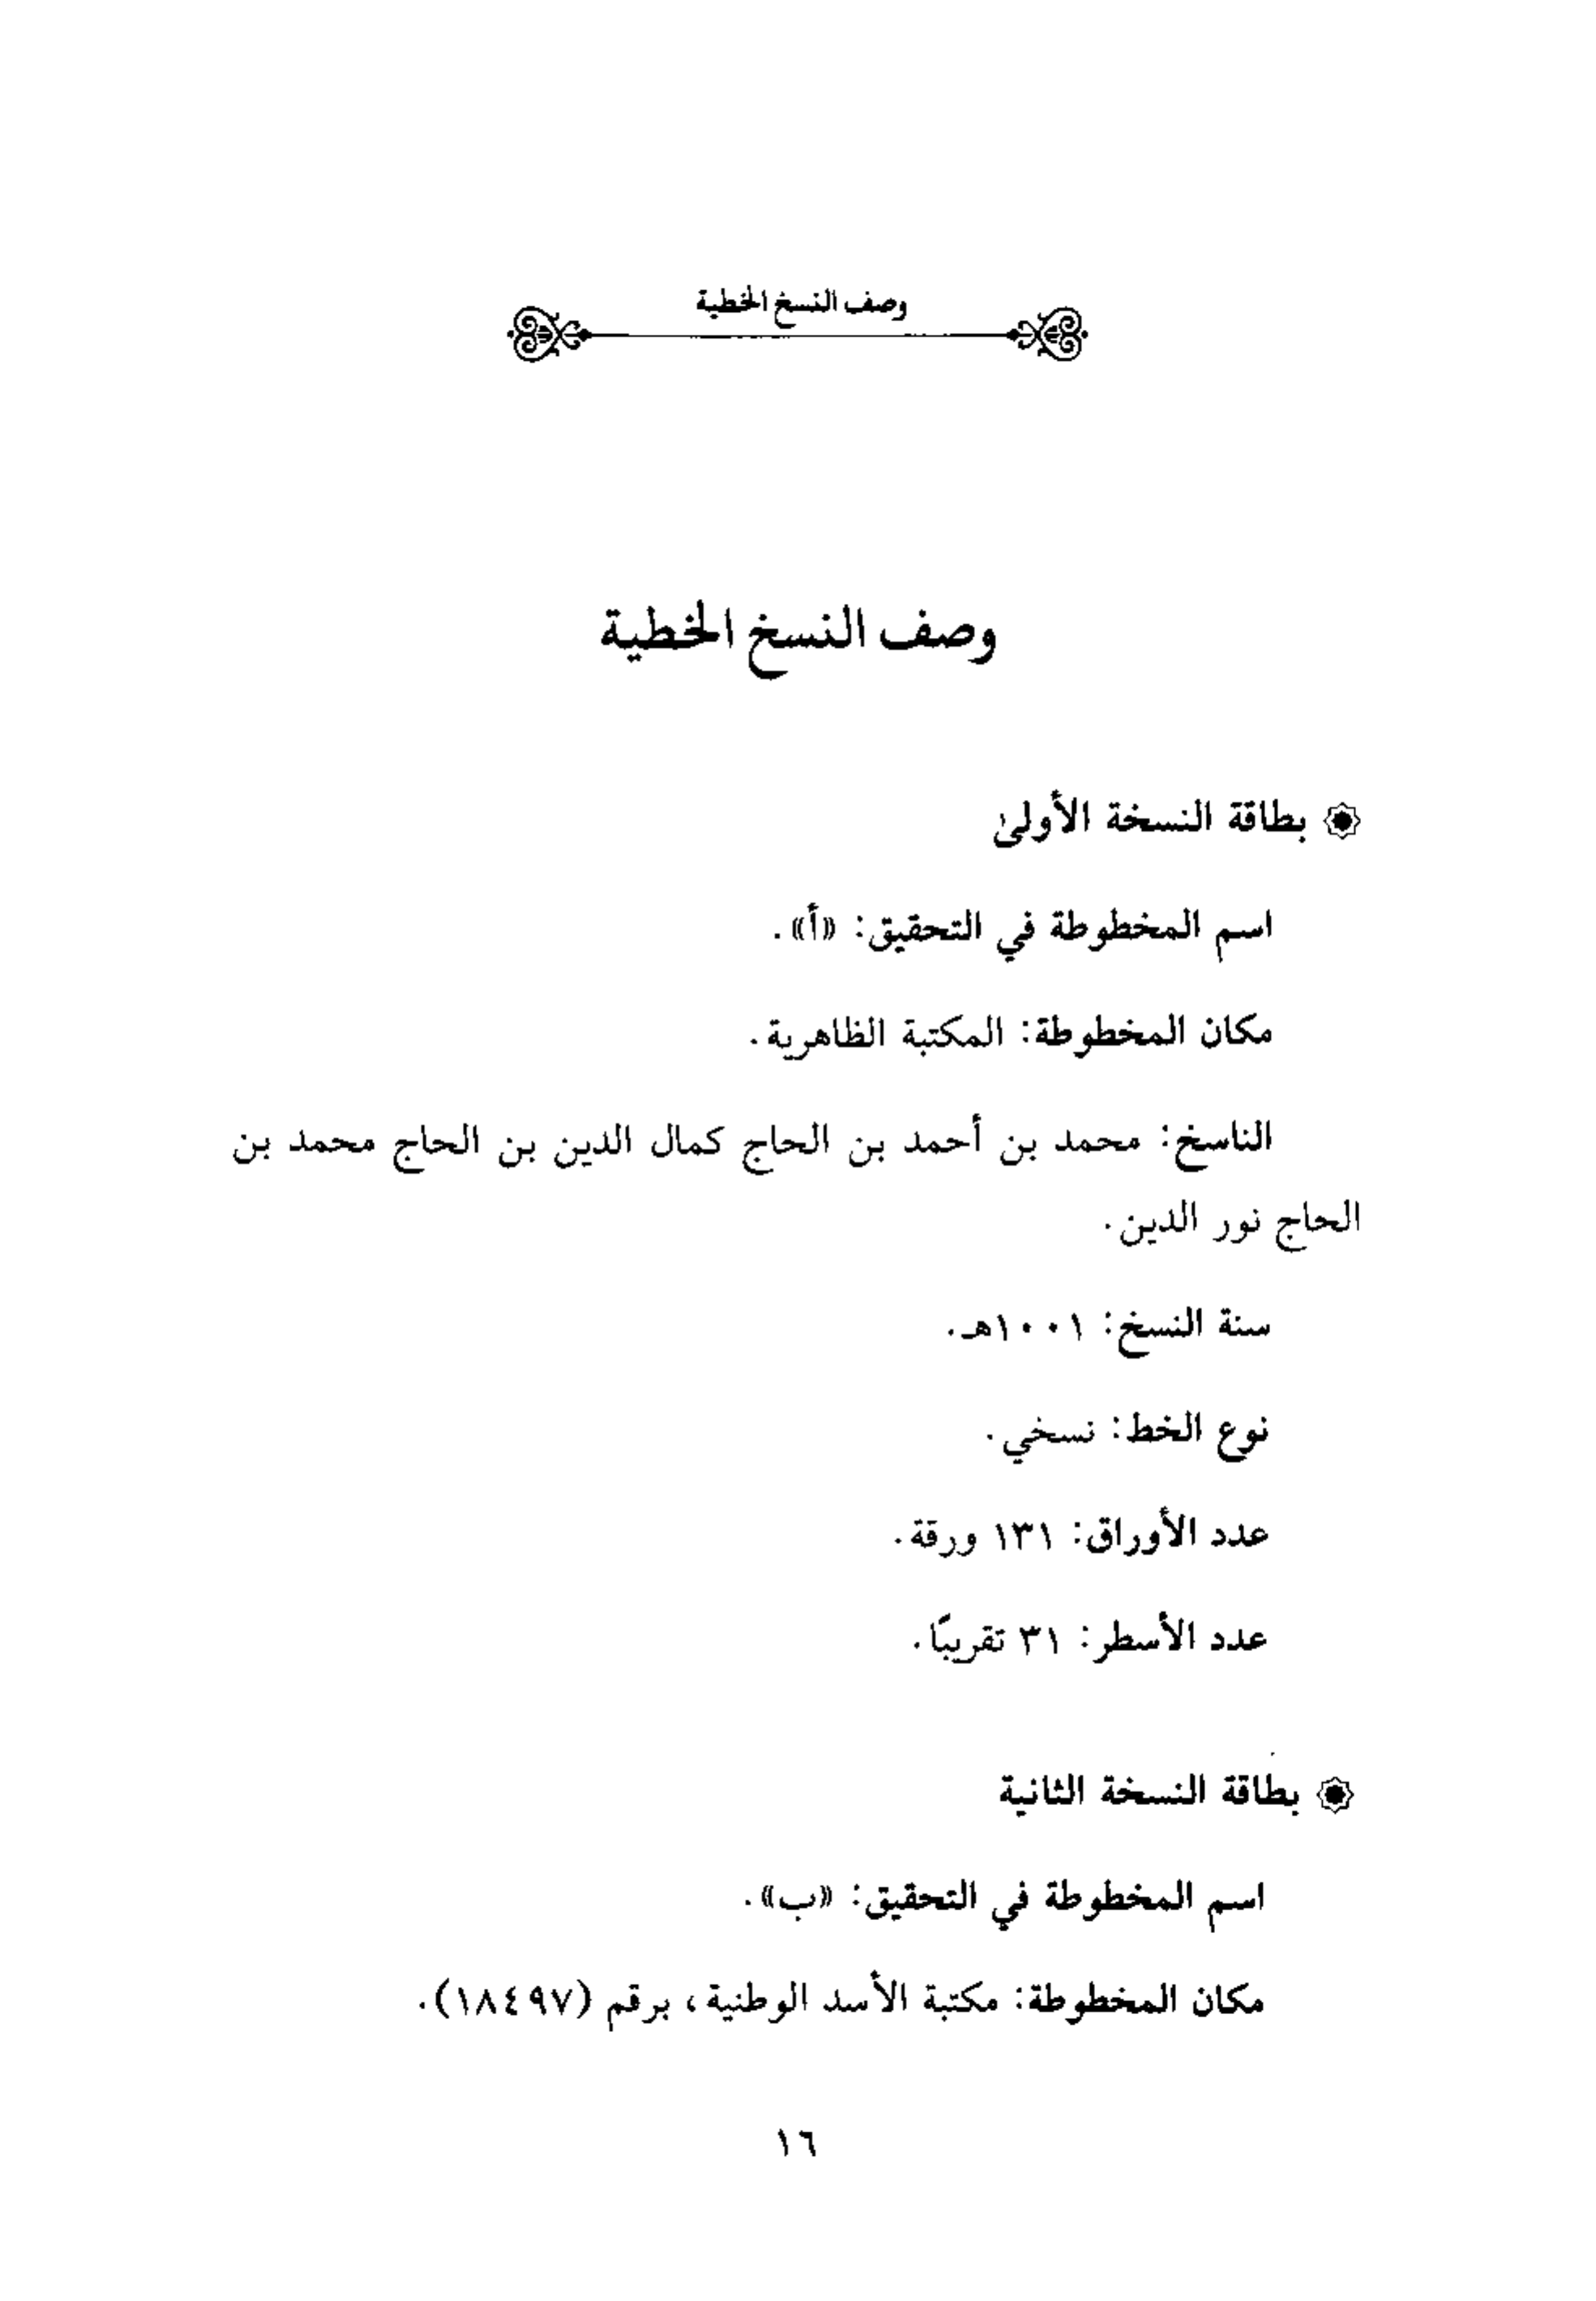 وصف النسخ الخطية
وصف النسخ الخطية
بطاقة النسخة الأولىٰ
اسم المخطوطة في التحقيق: «أ».
مكان المخطوطة: المكتبة الظاهرية.
الناسخ: محمد بن أحمد بن الحاج كمال الدين بن الحاج محمد بن
الحاج نور الدين.
سنة النسخ: ١٠٠١هـ.
نوع الخط: نسخي.
عدد الأوراق: ١٣١ ورقة.
عدد الأسطر: ٣١ تقريبًا.
بطاقة النسخة الثانية
اسم المخطوطة في التحقيق: «ب».
مكان المخطوطة: مكتبة الأسد الوطنية، برقم (١٨٤٩٧).
١٦